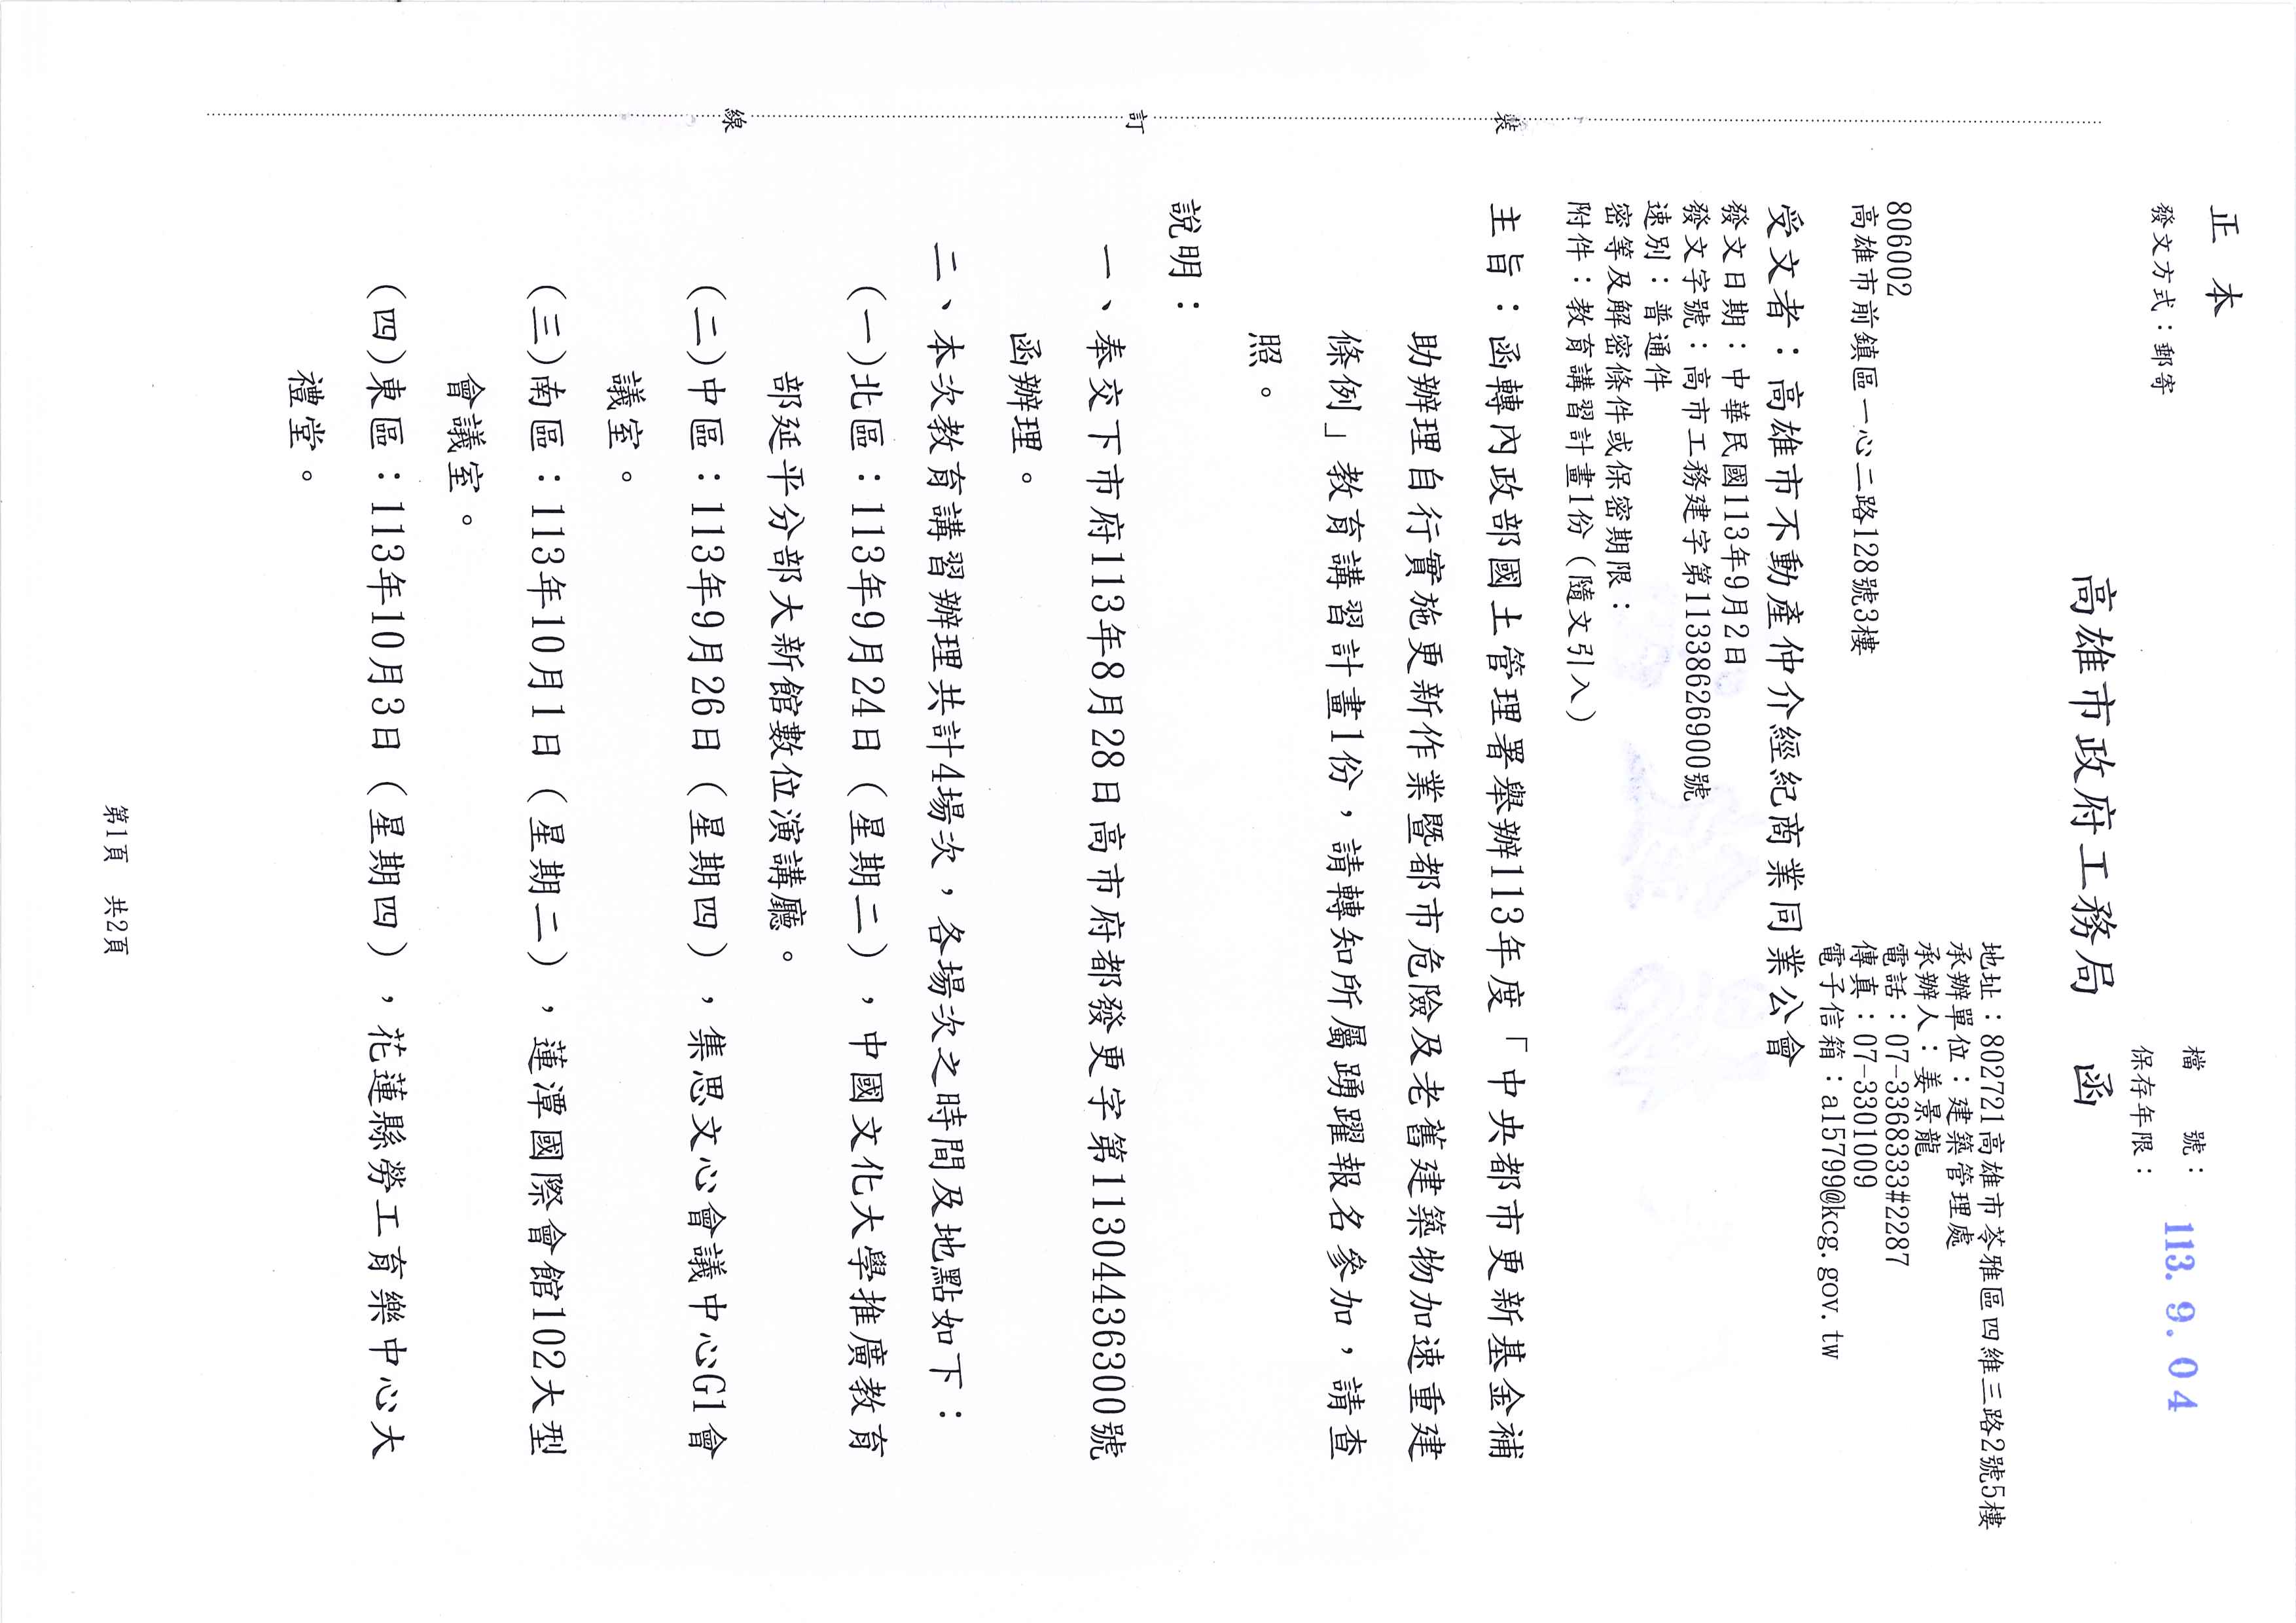 正本
發文方式：郵寄
檔　　號：
保存年限：
113. 9. 04
高雄市政府工務局　函
地址：802721高雄市苓雅區四維三路2號5樓
承辦單位：建築管理處
承辦人：姜景龍
電話：07-3368333#2287
傳真：07-3301009
電子信箱：al5799@kcg.gov.tw
806002
高雄市前鎮區一心二路128號3樓
受文者：高雄市不動產仲介經紀商業同業公會
發文日期：中華民國113年9月2日
發文字號：高市工務建字第11338626900號
速別：普通件
密等及解密條件或保密期限：
附件：教育講習計畫1份（隨文引入）
主旨：函轉內政部國土管理署舉辦113年度「中央都市更新基金補
助辦理自行實施更新作業暨都市危險及老舊建築物加速重建
條例」教育講習計畫1份，請轉知所屬踴躍報名參加，請查
照。
說明：
一、奉交下市府113年8月28日高市府都發更字第11304436300號
函辦理。
二、本次教育講習辦理共計4場次，各場次之時間及地點如下：
(一)北區：113年9月24日（星期二），中國文化大學推廣教育
部延平分部大新館數位演講廳。
(二)中區：113年9月26日（星期四），集思文心會議中心G1會
議室。
(三)南區：113年10月1日（星期二），蓮潭國際會館102大型
會議室。
(四)東區：113年10月3日（星期四），花蓮縣勞工育樂中心大
禮堂。
裝
訂
線
第1頁　共2頁